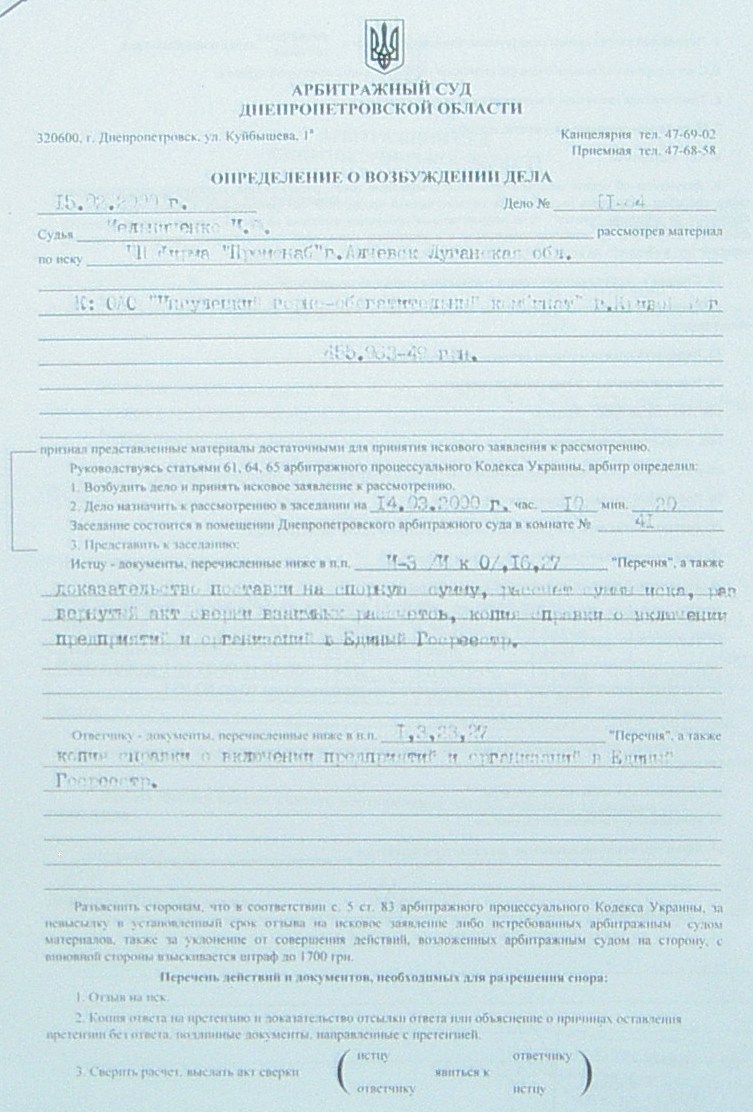 АРБИТРАЖНЫЙ СУД
ДНЕПРОПЕТРОВСКОЙ ОБЛАСТИ
320600, г. Днепропетровск, ул. Куйбышева, 1ª
Канцелярия тел. 47-69-02
Приемная тел. 47-68-58
ОПРЕДЕЛЕНИЕ О ВОЗБУЖДЕНИИ ДЕЛА
15.02.2000 г. Дело №
Судья рассмотрев материал
по иску фирма г.Алчевск Луганская обл.
К: ОАО горно-обогатительный комбинат" г.Кривой Рог
грн.
признал представленные материалы достаточными для принятия искового заявления к рассмотрению.
Руководствуясь статьями 61, 64, 65 арбитражного процессуального Кодекса Украины, арбитр определил:
1. Возбудить дело и принять исковое заявление к рассмотрению.
2. Дело назначить к рассмотрению в заседании на 14.03.2000 г. час. 10 мин. 20
Заседание состоится в помещении Днепропетровского арбитражного суда в комнате № 41
3. Представить к заседанию:
Истцу - документы, перечисленные ниже в п.п. 16,27 "Перечня", а также
доказательство поставки на спорную сумму, рассчет суммы иска, раз
вернутый акт сверки взаимных расчетов, копия справки о включении
предприятий и организаций в Единый Госреестр.
Ответчику - документы, перечисленные ниже в п.п. 1,3,23,27 "Перечня", а также
копия справки о включении предприятий и организаций в Единый
Госреестр.
Разъяснить сторонам, что в соответствии с. 5 ст. 83 арбитражного процессуального Кодекса Украины, за
невысылку в установленный срок отзыва на исковое заявление либо истребованных арбитражным судом
материалов, также за уклонение от совершения действий, возложенных арбитражным судом на сторону, с
виновной стороны взыскивается штраф до 1700 грн.
Перечень действий и документов, необходимых для разрешения спора:
1. Отзыв на иск.
2. Копия ответа на претензию и доказательство отсылки ответа или объяснение о причинах оставления
претензии без ответа, подлинные документы, направленные с претензией.
истцу ответчику
3. Сверить расчет, выслать акт сверки ( явиться к )
ответчику истцу